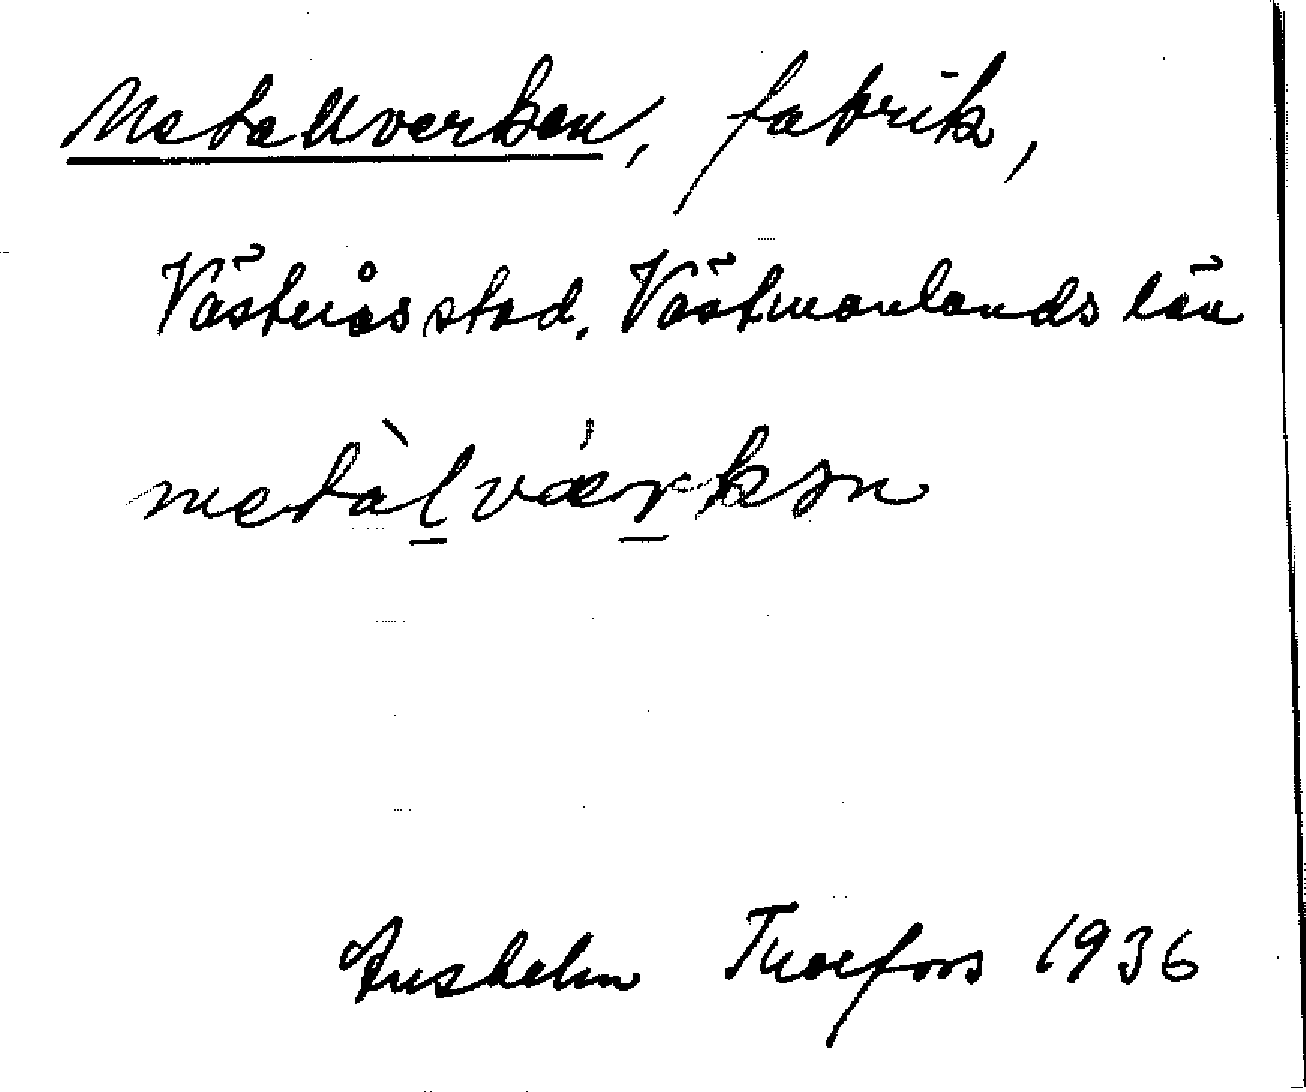 Metallverken, fabrik,
Västerås stad. Västmanlands län
metàl̠vær̠kən
Anshelm 1936